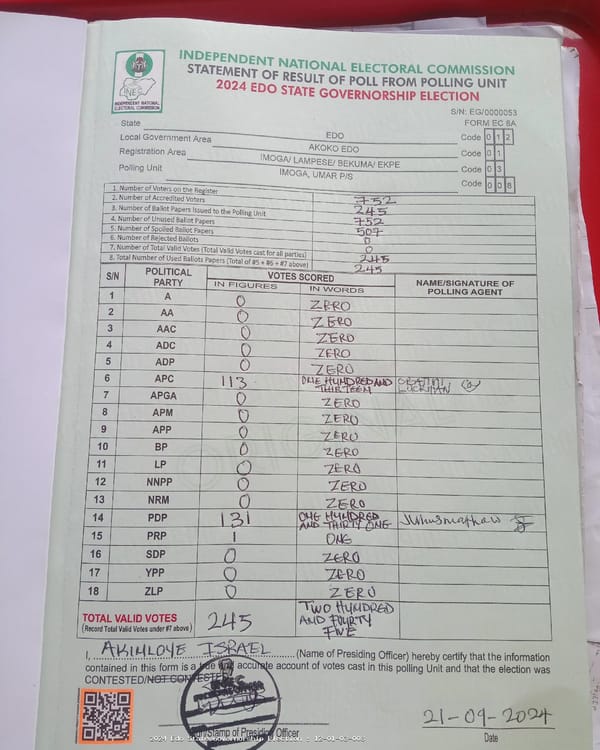 INDEPENDENT NATIONAL ELECTORAL COMMISSION
STATEMENT OF RESULT OF POLL FROM POLLING UNIT
2024 EDO STATE GOVERNORSHIP ELECTION
INEC
INDEPENDENT NATIONAL
ELECTORAL COMMISSION
S/N: EG/0000053
FORM EC 8A
State EDO Code 0 1 2
Local Government Area AKOKO EDO Code 0 1
Registration Area IMOGA/ LAMPESE/ BEKUMA/ EKPE Code 0 3
Polling Unit IMOGA, UMAR P/S Code 0 0 8
1. Number of Voters on the Register 752
2. Number of Accredited Voters 245
3. Number of Ballot Papers Issued to the Polling Unit 752
4. Number of Unused Ballot Papers 507
5. Number of Spoiled Ballot Papers 0
6. Number of Rejected Ballots 0
7. Number of Total Valid Votes (Total Valid Votes cast for all parties) 245
8. Total Number of Used Ballots Papers (Total of #5 + #6 + #7 above) 245
S/N POLITICAL PARTY VOTES SCORED NAME/SIGNATURE OF POLLING AGENT
IN FIGURES IN WORDS
1 A 0 ZERO
2 AA 0 ZERO
3 AAC 0 ZERO
4 ADC 0 ZERO
5 ADP 0 ZERO
6 APC 113 ONE HUNDRED AND THIRTEEN
7 APGA 0 ZERO
8 APM 0 ZERO
9 APP 0 ZERO
10 BP 0 ZERO
11 LP 0 ZERO
12 NNPP 0 ZERO
13 NRM 0 ZERO
14 PDP 131 ONE HUNDRED AND THIRTY ONE
15 PRP 1 ONE
16 SDP 0 ZERO
17 YPP 0 ZERO
18 ZLP 0 ZERO
TOTAL VALID VOTES 245 TWO HUNDRED AND FOURTY FIVE
(Record Total Valid Votes under #7 above)
I, AKINLOYE ISRAEL (Name of Presiding Officer) hereby certify that the information
contained in this form is a true and accurate account of votes cast in this polling Unit and that the election was
CONTESTED/NOT CONTESTED
21-09-2024
Stamp of Presiding Officer Date
2024 Edo State Governorship Election - 12-01-03-008